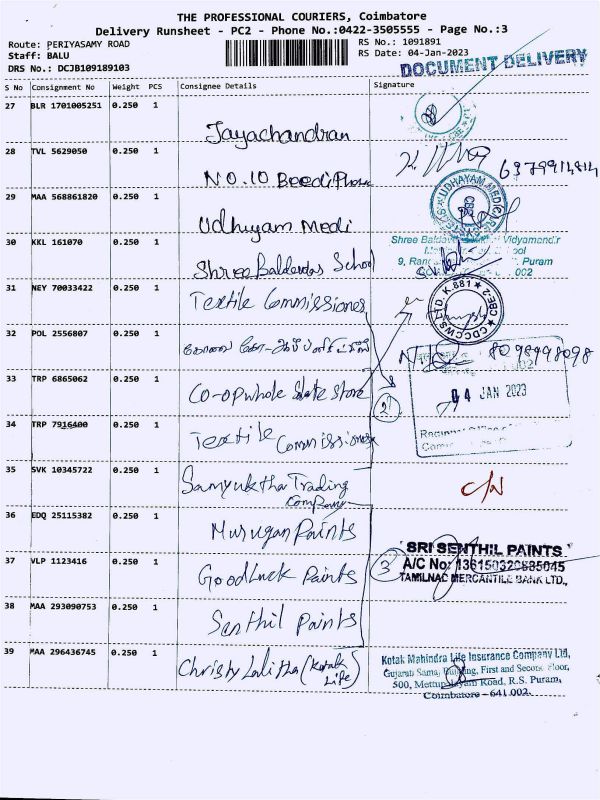 THE PROFESSIONAL COURIERS, Coimbatore
Delivery Runsheet - PC2 - Phone No.:0422-3505555 - Page No.:3
Route: PERIYASAMY ROAD
Staff: BALU
DRS No.: DCJB109189103
RS No.: 1091891
RS Date: 04-Jan-2023
DOCUMENT DELIVERY
S No Consignment No Weight PCS Consignee Details Signature
27 BLR 1701005251 0.250 1
Jayachandran
28 TVL 5629050 0.250 1
No.10 Beedi
29 MAA 568861820 0.250 1
Udhayam Medi
UDHAYAM MEDICARE
CBE
30 KKL 161070 0.250 1
Shree Baldevdas School
Shree Vidyamandir
9, Puram
002
31 NEY 70033422 0.250 1
Textile Commissioner
CDCCWS LTD. K.881 CBE-2
32 POL 2556807 0.250 1
8098998098
33 TRP 6865062 0.250 1
Co-opwhole Sale Store
2
04 JAN 2023
34 TRP 7916400 0.250 1
Textile Commissioner
35 SVK 10345722 0.250 1
Samyuktha Trading
Company
C/N
36 EDQ 25115382 0.250 1
Murugan Paints
SRI SENTHIL PAINTS
3 A/C No: 136150320885045
TAMILNAD MERCANTILE BANK LTD.,
37 VLP 1123416 0.250 1
Goodluck Paints
38 MAA 293090753 0.250 1
Senthil Paints
39 MAA 296436745 0.250 1
Christy Lalitha (Kotak
Life)
Kotak Mahindra Life Insurance Company Ltd,
Gujarati Samaj Building, First and Second Floor,
500, Mettupalayam Road, R.S. Puram,
Coimbatore - 641 002.